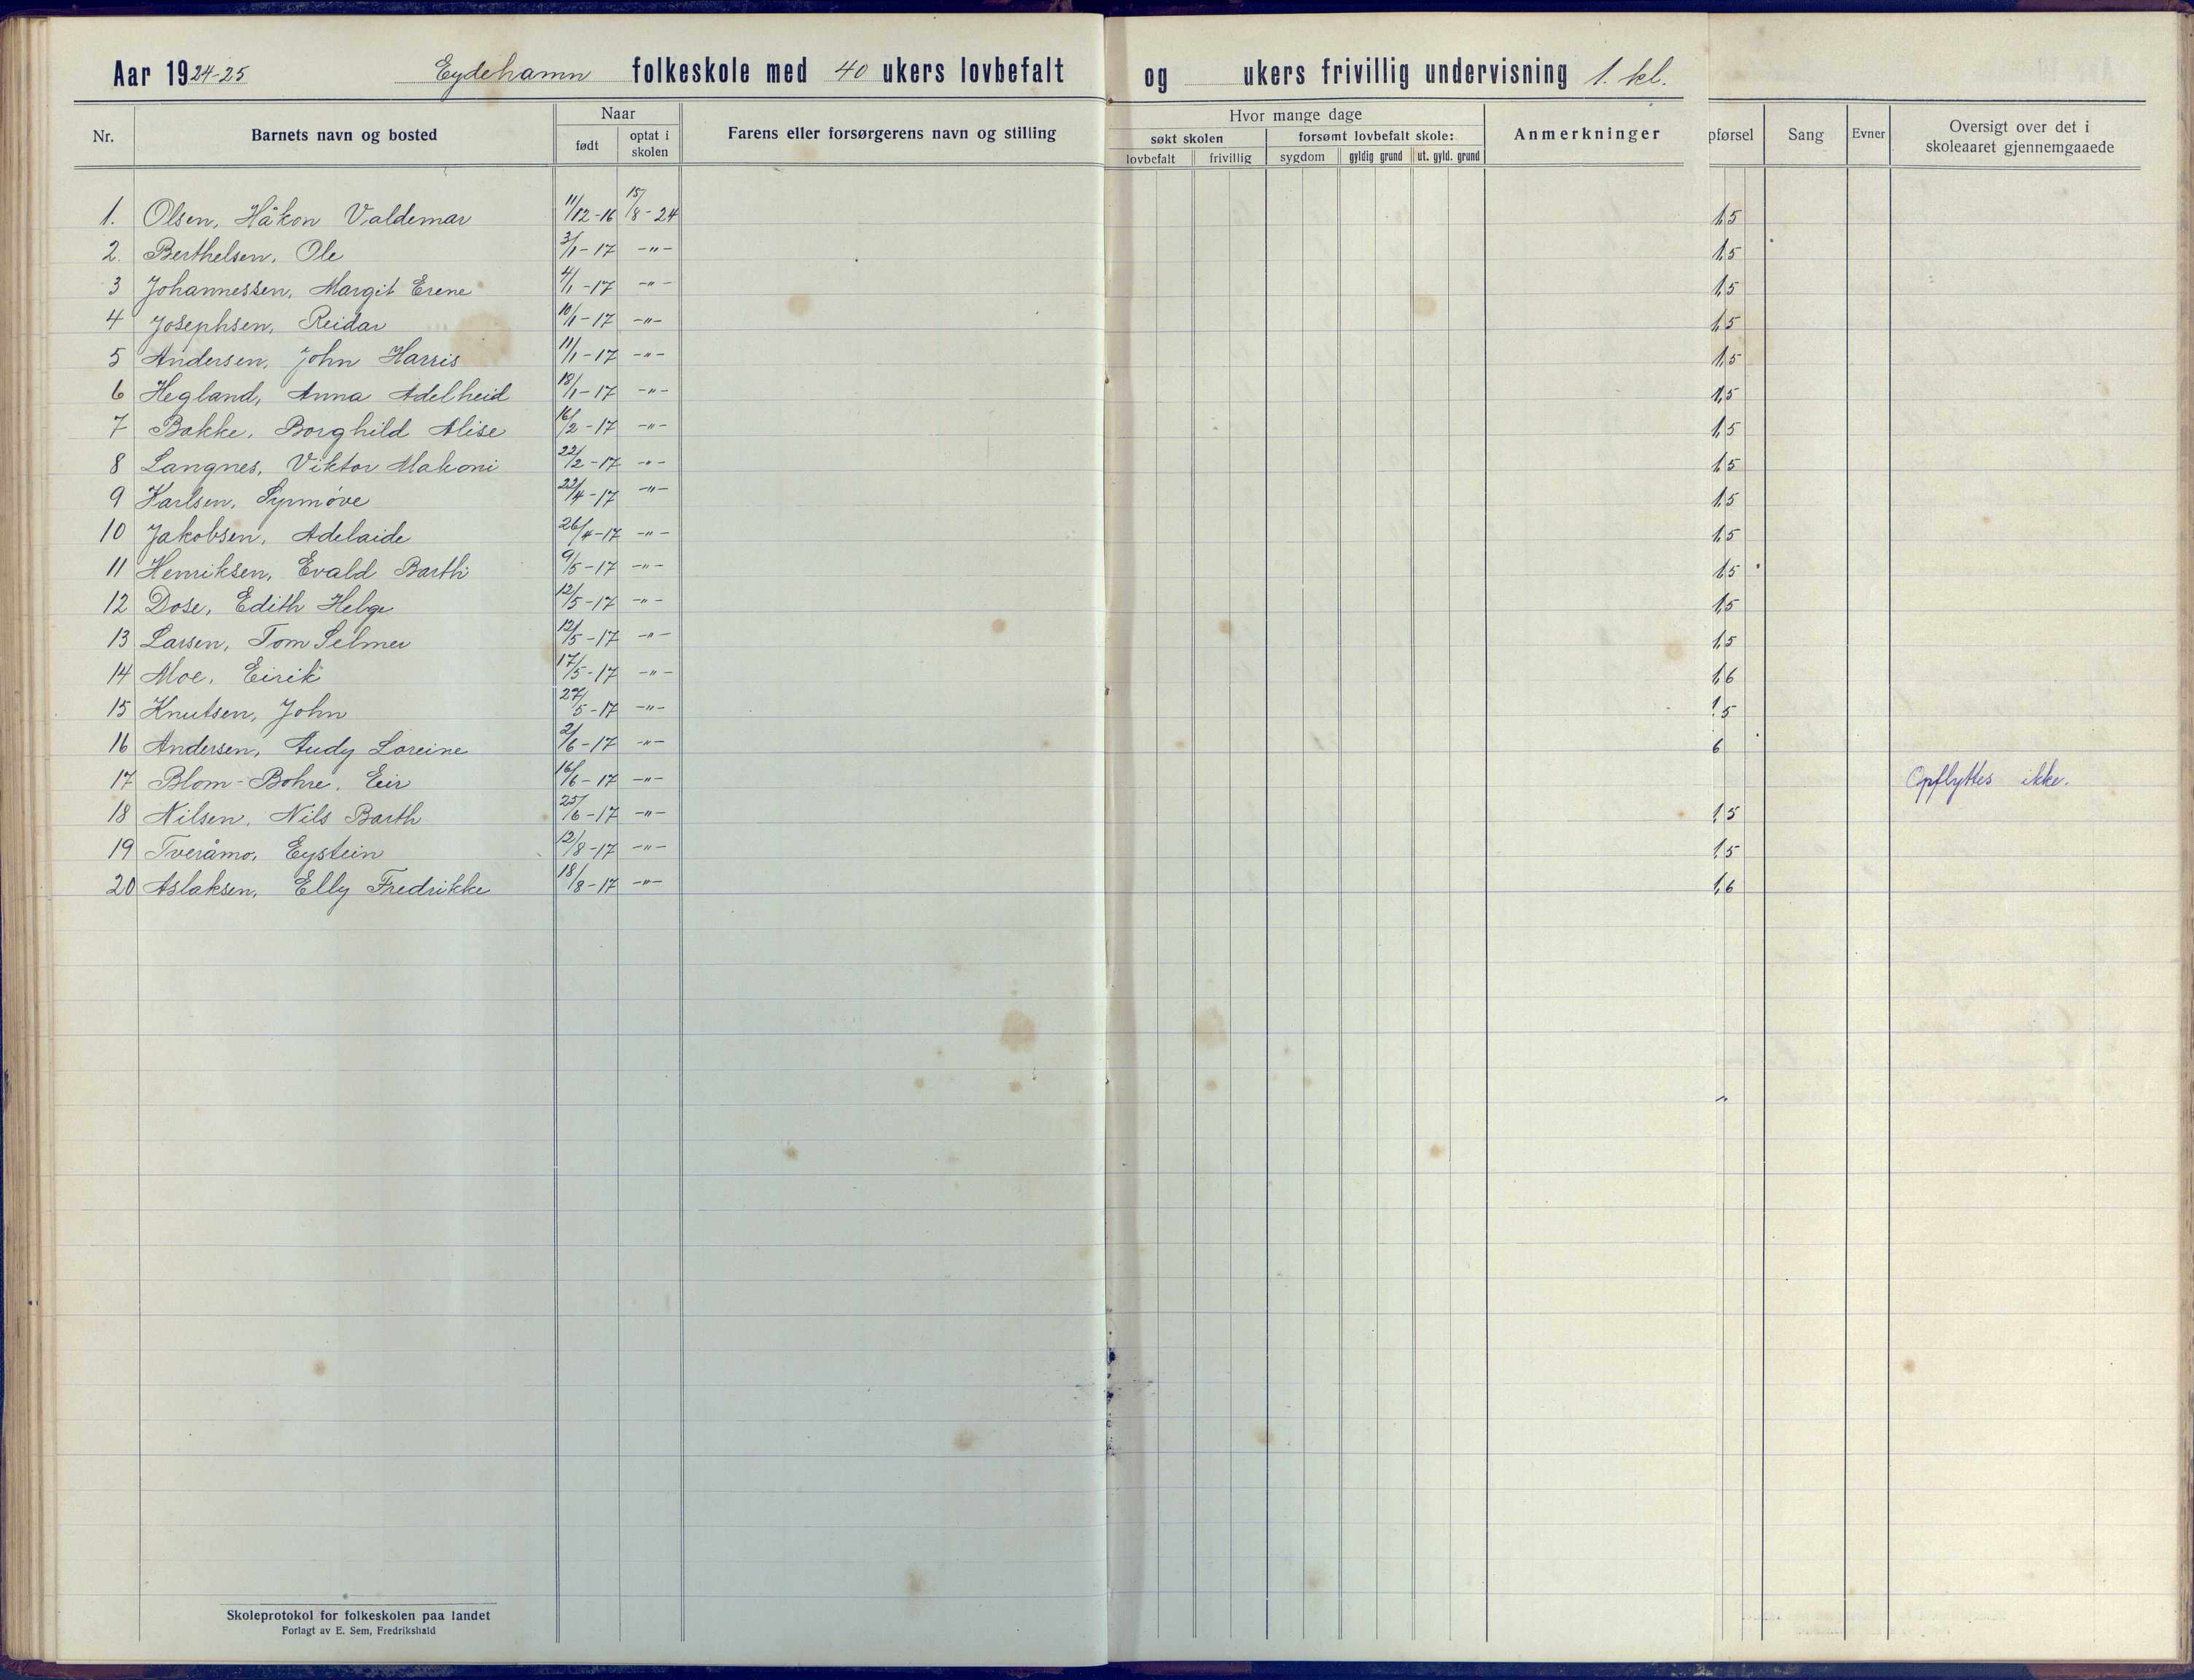 Aar 1924-25 Eydehamn folkeskole med 40 ukers lovbefalt og ukers frivillig undervisning 1. kl.
Nr. Barnets navn og bosted Naar født optat i skolen Farens eller forsørgerens navn og stilling Hvor mange dage søkt skolen lovbefalt frivillig forsømt lovbefalt skole: sygdom gyldig grund ut. gyld. grund Anmerkninger pførsel Sang Evner Oversigt over det i skoleaaret gjennemgaaede
1. Olsen, Håkon Valdemar 11/12-16 15/8-24 1,5
2. Berthelsen, Ole 3/1-17 -"- 1,5
3 Johannessen, Margit Erene 4/1-17 -"- 1,5
4 Josephsen, Reidar 10/1-17 -"- 1,5
5 Andersen, John Harris 11/1-17 -"- 1,5
6 Hegland, Anna Adelheid 18/1-17 -"- 1,5
7 Bakke, Borghild Alise 16/2-17 -"- 1,5
8 Langnes, Viktor Makoni 22/2-17 -"- 1,5
9 Karlsen, Synnøve 22/4-17 -"- 1,5
10 Jakobsen, Adelaide 26/4-17 -"- 1,5
11 Henriksen, Evald Barth 9/5-17 -"- 1,5
12 Dose, Edith Helge 12/5-17 -"- 1,5
13 Larsen, Tom Selmer 12/5-17 -"- 1,5
14 Moe, Eirik 17/5-17 -"- 1,6
15 Knutsen, John 27/5-17 -"- 1,5
16 Andersen, Audy Loreine 2/6-17 -"- 6
17 Blom-Bohre, Eir 16/6-17 -"- Opflyttes ikke.
18 Nilsen, Nils Barth 25/6-17 -"- 1,5
19 Tveråmo, Eystein 12/8-17 -"- 1,5
20 Aslaksen, Elly Fredrikke 18/8-17 -"- 1,6
Skoleprotokol for folkeskolen paa landet
Forlagt av E. Sem, Fredrikshald